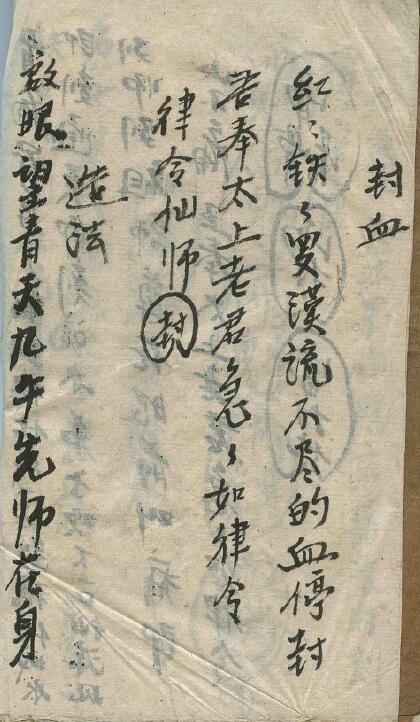 封血
红〻铁〻罗漢流不尽的血停封
吾奉太上老君急〻如律令
律令仙师封
造法
放眼望青天九牛先师在身